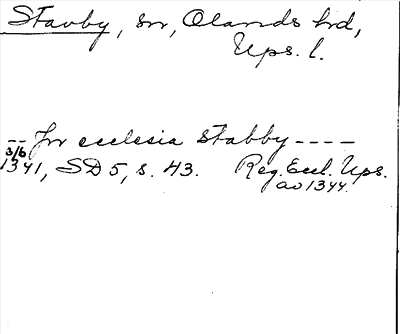 Stavby, sn, Olands hrd,
Ups. l.
-- Jn ecclesia Stabby ----
3/6
1341, SD 5, s. 43. Reg. Eccl. Ups.
av 1344.